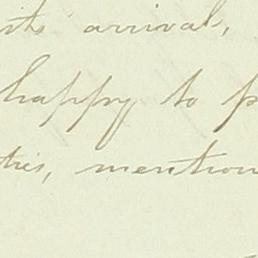 its arrival,
happy to p
ties, mention